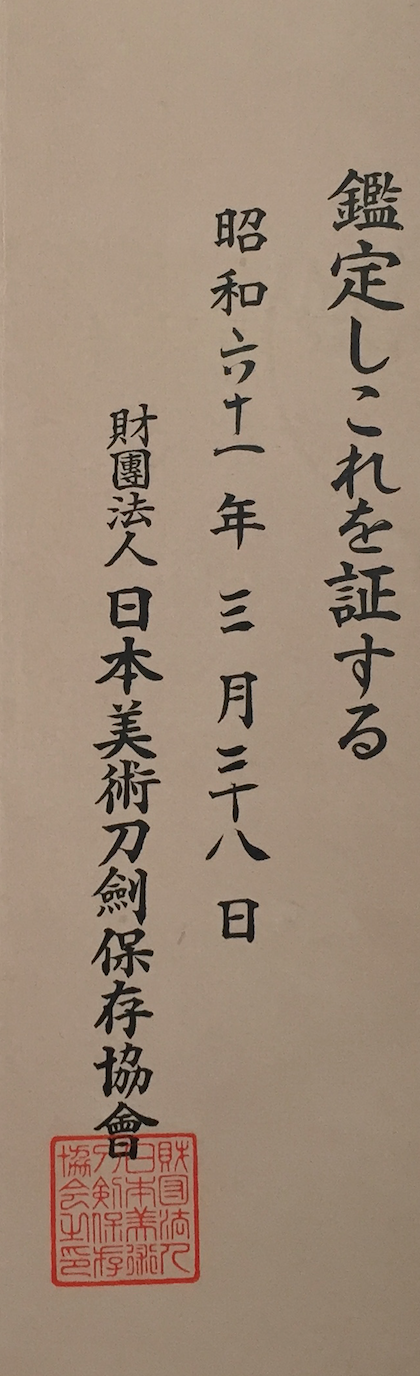 鑑定しこれを証する
昭和六十一年三月二十八日
財團法人日本美術刀劍保存協會
財団法人
日本美術
刀剣保存
協会之印